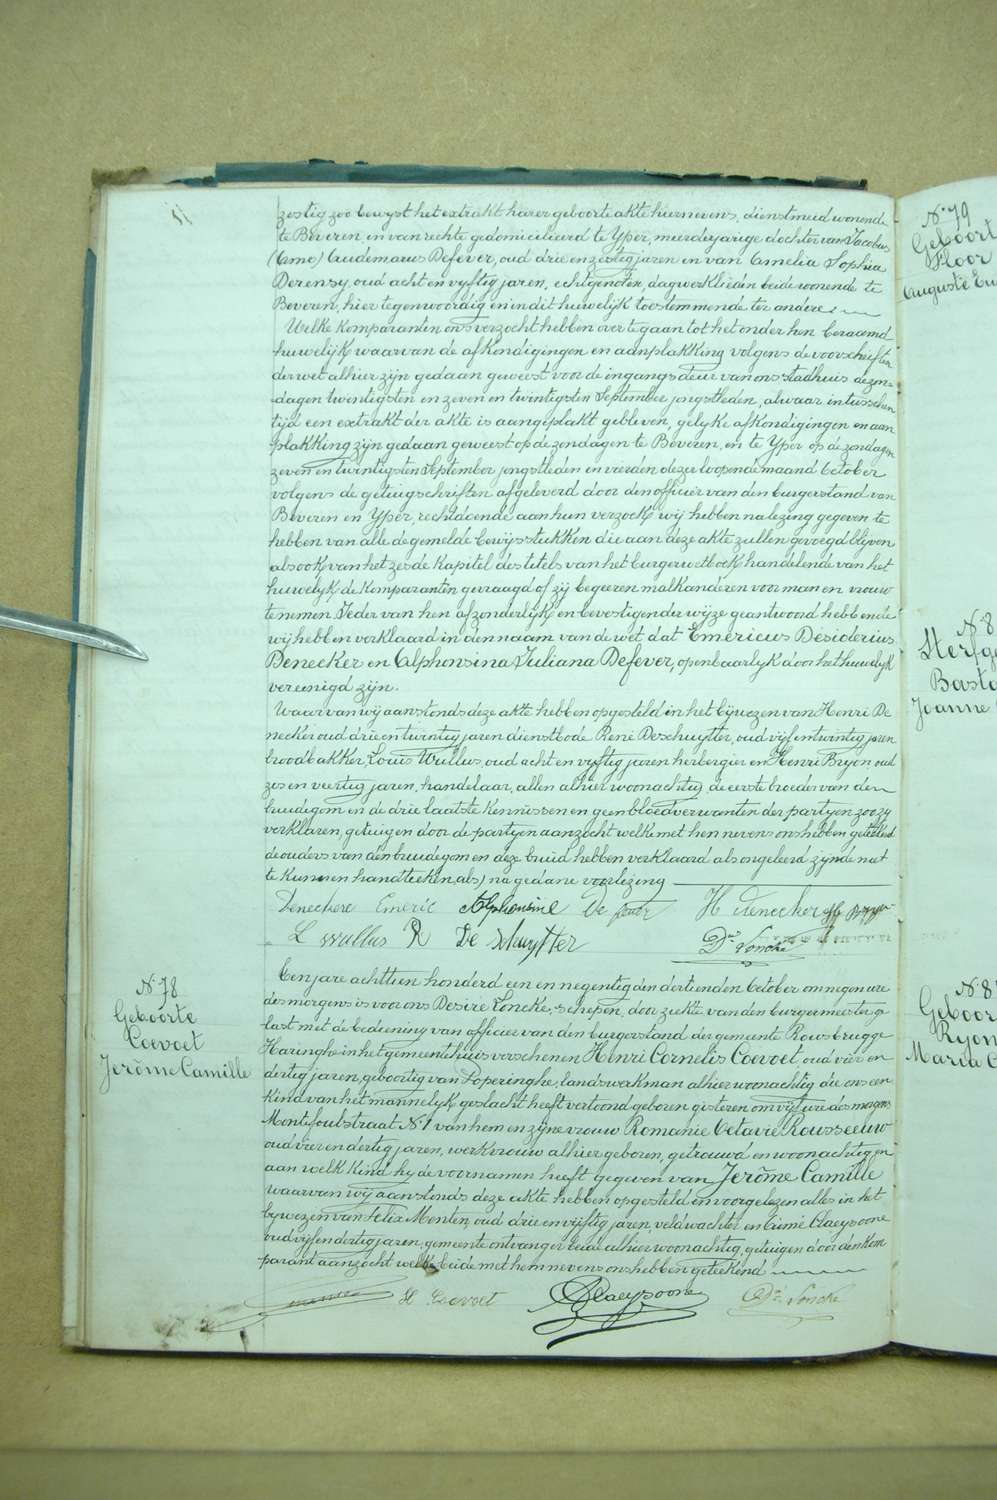 zestig zoo bewyst het extrakt harer geboorte akte hiernevens, dienstmeid wonende
te Beveren, en van rechte gedomicilieerd te Yper, meerderjarige dochter van Jacobus
Audemarus Defever, oud drie en zestig jaren en van Amelia Sophia
Derensy, oud acht en vyftig jaren, echtgenoten, dagwerklieden beide wonende te
Beveren, hier tegenwoordig en in dit huwelijk toestemmende ter andere.
Welke komparanten ons verzocht hebben over te gaan tot het onder hen beraamd
huwelijk waarvan de afkondigingen en aanplakking volgens de voorschriften
der wet alhier zijn gedaan geweest voor de ingangsdeur van ons stadhuis de zon-
dagen twentigsten en zeven en twintigsten September jongstleden, alwaar intusschen
tijd een extrakt der akte is aangeplakt gebleven, gelyke afkondigingen en aan
plakking zijn gedaan geweest op de zondagen te Beveren, en te Yper op de zondagen
zeven en twintigsten September jongstleden en vierden dezer loopende maand October
volgens de getuigschriften afgeleverd door den officier van den burgerstand van
Beveren en Yper, rechtdoende aan hun verzoek wij hebben na lezing gegeven te
hebben van alle de gemelde bewijsstukken die aan deze akte zullen gevoegd blijven
alsook van het zesde kapitel des titels van het burgerwetboek handelende van het
huwelyk de komparanten gevraagd of zij begeeren malkanderen voor man en vrouw
te nemen. Ieder van hen afzonderlijk en bevestigender wijze geantwoord hebbende
wij hebben verklaard in den naam van de wet dat Emericus Désiderius
Denecker en Alphonsina Juliana Defever, openbaarlyk door het huwelyk
vereenigd zyn.
Waarvan wij aanstonds deze akte hebben opgesteld in het bijwezen van Henri De
necker oud drie en twintig jaren dienstbode René Deschuytter, oud vijf en twintig jaren
broodbakker, Louis Wullus, oud acht en vyftig jaren herbergier en Henri Bryon oud
zes en veertig jaren, handelaar, allen alhier woonachtig, de eerste broeder van den
bruidegom en de drie laatste kennissen en geen bloedverwanten der partyen zoo zy
verklaren, getuigen door de partyen aanzocht welke met hen nevens ons hebben geteekend
de ouders van den bruidegom en deze bruid hebben verklaard als ongeleerd zynde niet
te kunnen handteeken, als) na gedane voorlezing
Deneckere Emeric Alphonsine De fever H Denecker
L wullus R De Schuytter Dré Loncke
N. 78
Geboorte
Coevoet
Jerôme Camille
Een jare achttien honderd een en negentig den dertienden October om negen ure
des morgens is voor ons Desiré Loncke, schepen, door ziekte van den burgermeester ge
last met de bediening van officier van den burgerstand der gemeente Rousbrugge
Haringhe in het gemeentehuis verschenen Henri Cornelis Coevoet oud vier en
dertig jaren, geboortig van Poperinghe, landswakman alhier woonachtig die ons een
kind van het mannelyk geslacht heeft vertoond geboren gisteren om vijf ure des morgens
straat N. 1 van hem en zijne vrouw Romanie Octavie Rousseeuw
oud vier en dertig jaren, werkvrouw alhier geboren, getrouwd en woonachtig, en
aan welk kind hy de voornamen heeft gegeven van Jerôme Camille
waarvan wij aanstonds deze akte hebben opgesteld en voorgelezen alles in het
bywezen van Felix Menten, oud drie en vijftig jaren, veldwachter en Aimé Claeysoone
oud vijf en dertig jaren, gemeente ontvanger beide alhier woonachtig, getuigen door den kom
parant aanzocht welke beide met hem nevens ons hebben geteekend
H Coevoet Claeysoone Dré Loncke
N. 79
Geboort
Floor
N. 8
Sterfge
Basto
Joanne
N. 8
Geboor
Ryon
Maria C